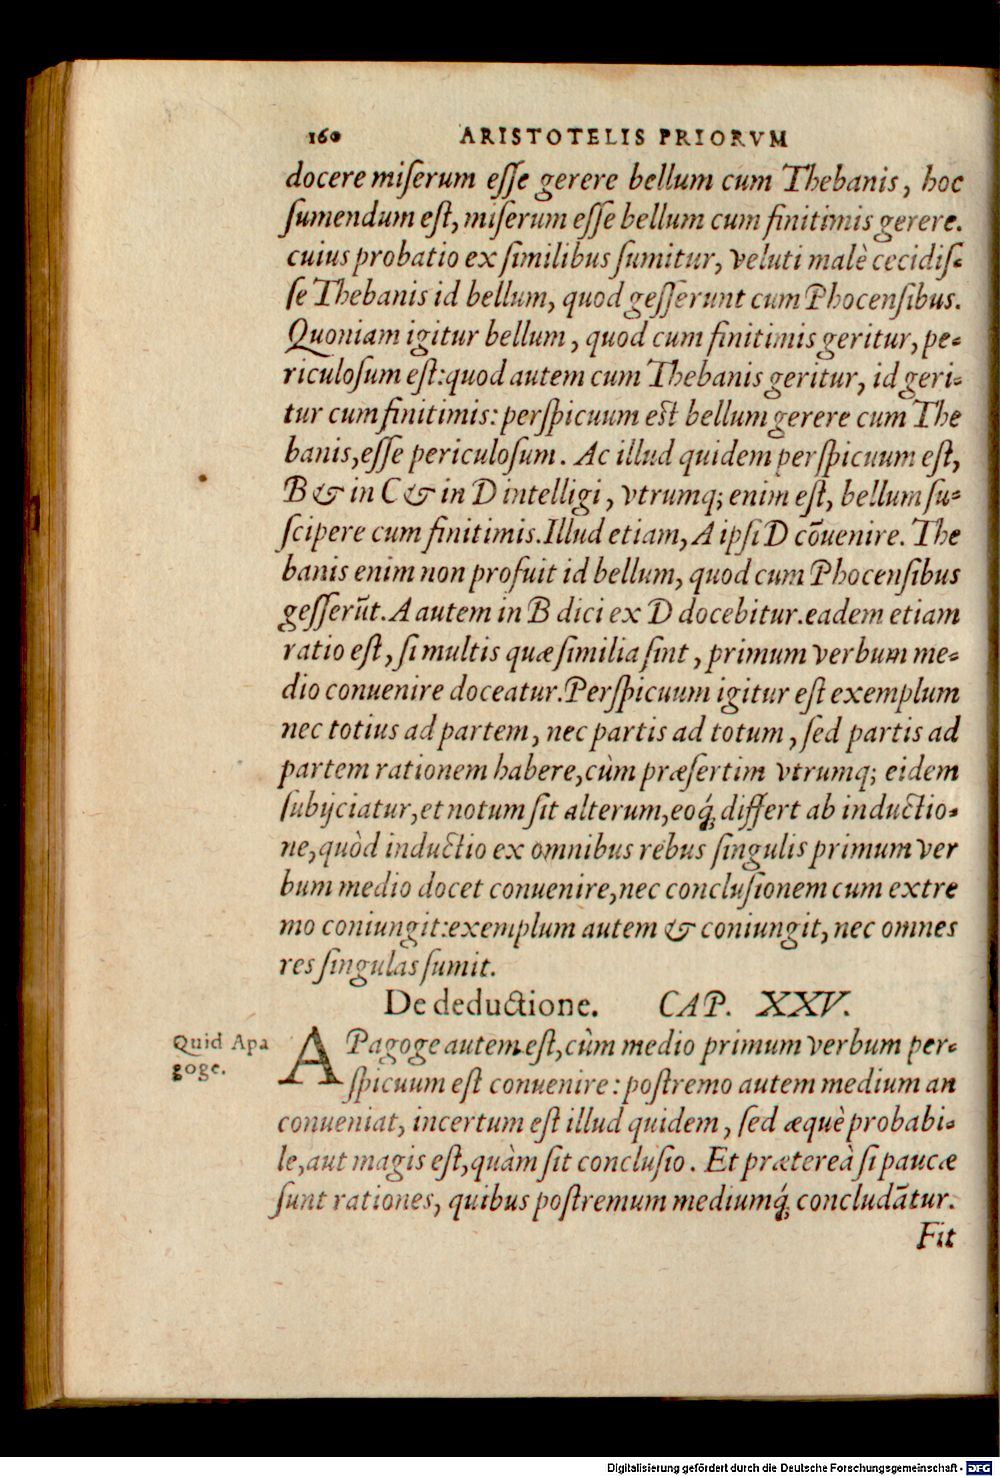 160 ARISTOTELIS PRIORVM
docere miſerum eſſe gerere bellum cum Thebanis, hoc
ſumendum eſt, miſerum eſſe bellum cum finitimis gerere.
cuius probatio ex ſimilibus ſumitur, veluti malè cecidiſ-
ſe Thebanis id bellum, quod geſſerunt cum Phocenſibus.
Quoniam igitur bellum, quod cum finitimis geritur, pe-
riculoſum eſt: quod autem cum Thebanis geritur, id geri-
tur cum finitimis: perſpicuum eſt bellum gerere cum The
banis, eſſe periculoſum. Ac illud quidem perſpicuum eſt,
B & in C & in D intelligi, vtrumq; enim eſt, bellum ſu-
ſcipere cum finitimis. Illud etiam, A ipſi D cōuenire. The
banis enim non profuit id bellum, quod cum Phocenſibus
geſſerūt. A autem in B dici ex D docebitur. eadem etiam
ratio eſt, ſi multis quæ ſimilia ſint, primum verbum me-
dio conuenire doceatur. Perſpicuum igitur eſt exemplum
nec totius ad partem, nec partis ad totum, ſed partis ad
partem rationem habere, cùm præſertim vtrumq; eidem
ſubijciatur, et notum ſit alterum, eoq́; differt ab inductio-
ne, quòd inductio ex omnibus rebus ſingulis primum ver
bum medio docet conuenire, nec concluſionem cum extre
mo coniungit: exemplum autem & coniungit, nec omnes
res ſingulas ſumit.
De deductione. CAP. XXV.
Quid Apa
goge.
APagoge autem eſt, cùm medio primum verbum per-
ſpicuum eſt conuenire: poſtremo autem medium an
conueniat, incertum eſt illud quidem, ſed æquè probabi-
le, aut magis eſt, quàm ſit concluſio. Et prætereà ſi paucæ
ſunt rationes, quibus poſtremum mediumq́; concludātur.
Fit
Digitalisierung gefördert durch die Deutsche Forschungsgemeinschaft - DFG